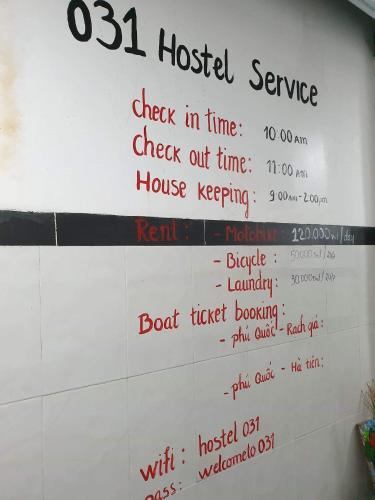 031 Hostel Service
check in time: 10:00 AM
Check out time: 11:00 AM
House keeping: 9:00AM-2:00pm
Rent: - Motobike: 120.000vnd/day
- Bicycle:
- Laundry:
Boat ticket booking:
- phú Quốc - Rạch giá:
- phú Quốc - Hà tiên:
wifi: hostel 031
pass: welcometo031